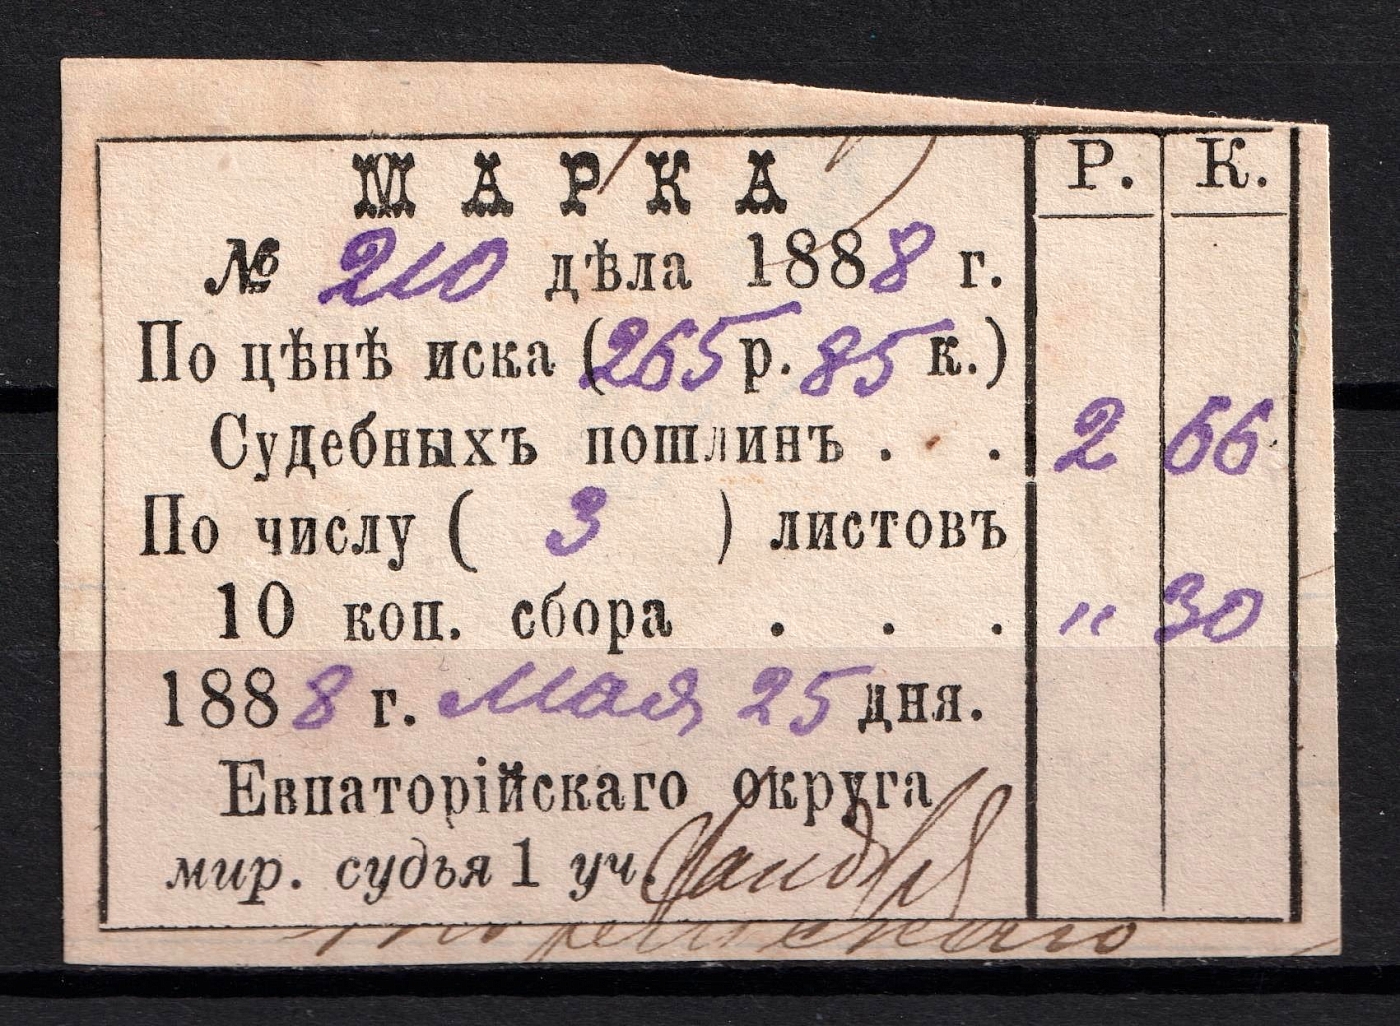 МАРКА Р. К.
№ 210 дѣла 1888 г.
По цѣнѣ иска (265 р. 85 к.)
Судебныхъ пошлинъ . . 2 66
По числу ( 3 ) листовъ
10 коп. сбора . . . „ 30
1888 г. Мая 25 дня.
Евпаторійскаго округа
мир. судья 1 уч.